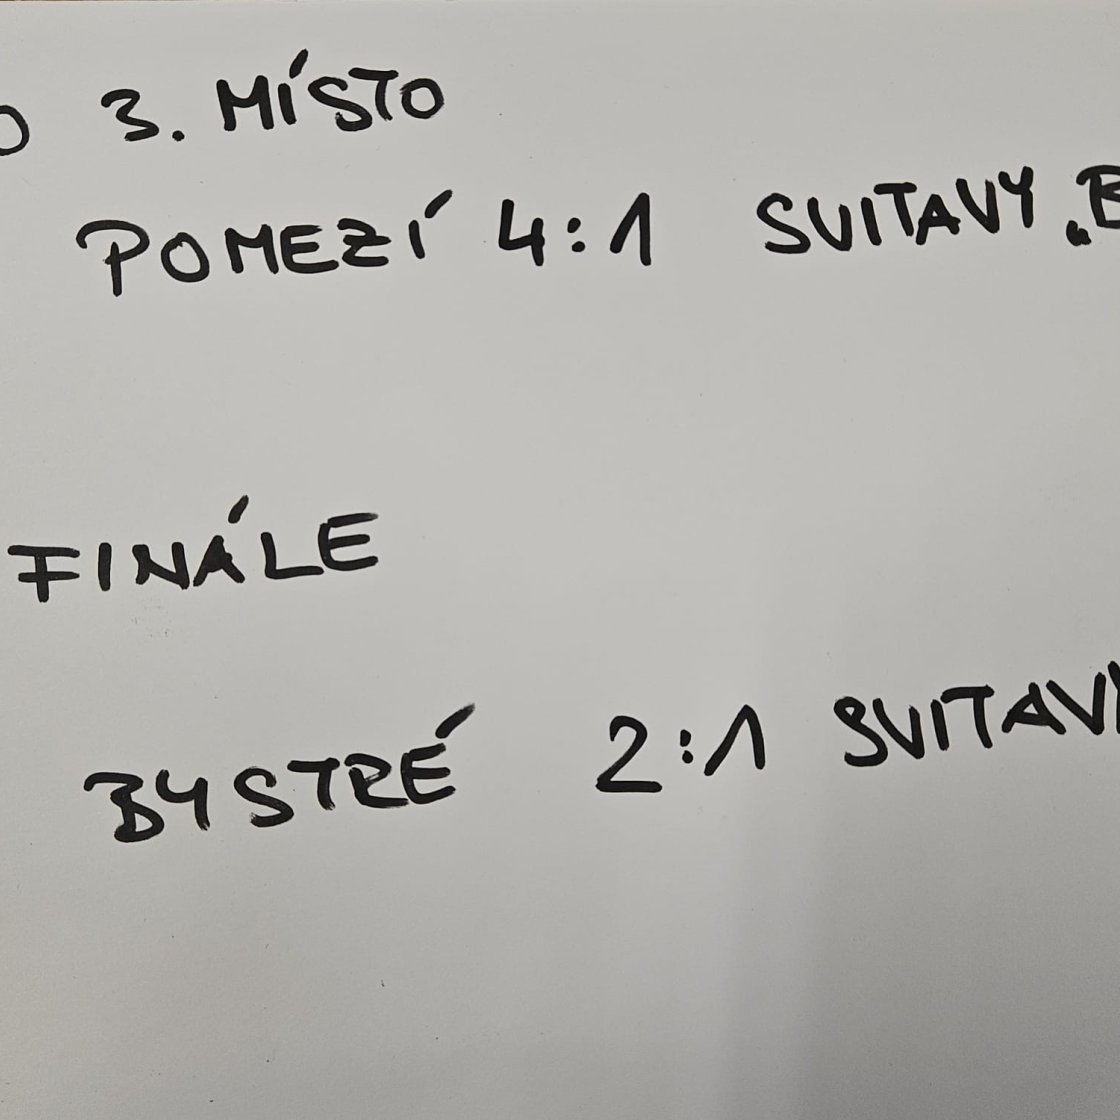 O 3. MÍSTO
POMEZÍ 4:1 SVITAVY „B
FINÁLE
BYSTRÉ 2:1 SVITAVY